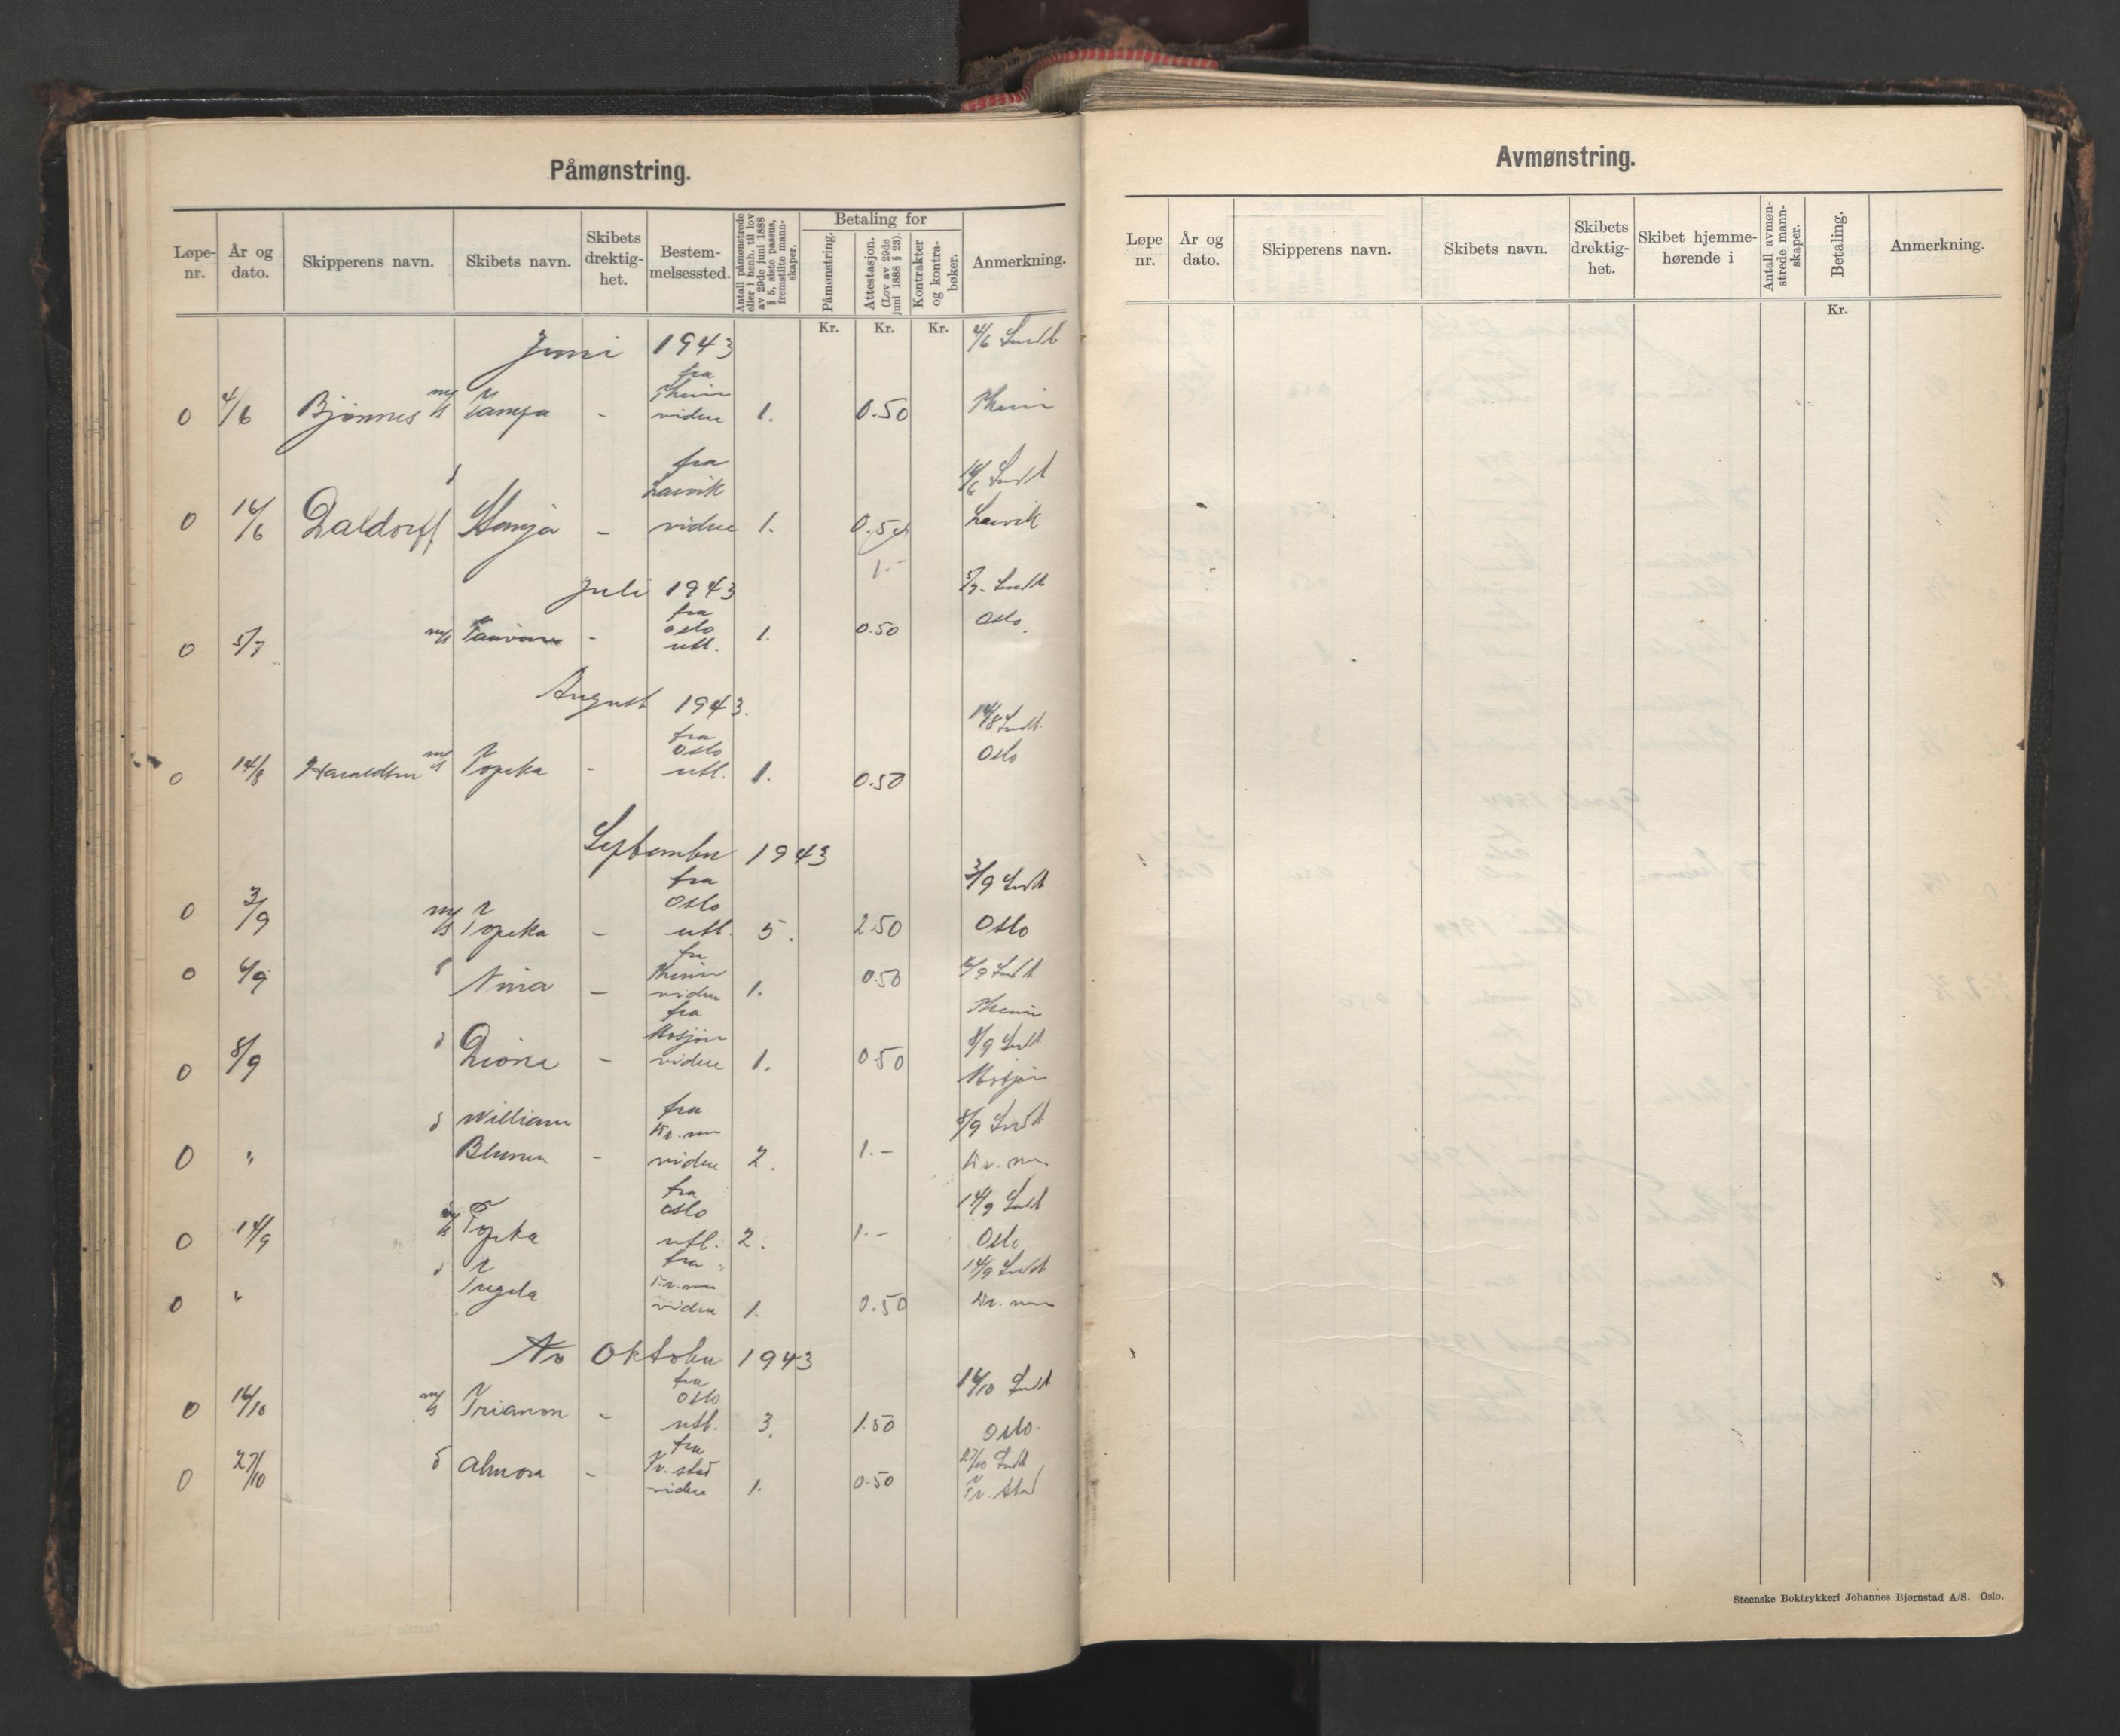 Påmønstring.
Løpe-nr.
År og dato.
Skipperens navn.
Skibets navn.
Skibets drektig-het.
Bestem-melsessted.
Antall påmønstrede eller i henh. til lov av 29de juni 1888 § 5, siste passus, fremstilte mann-skaper.
Betaling for
Påmønstring.
Attestasjon. (Lov av 29de juni 1888 § 23).
Kontrakter og kontra-bøker.
Anmerkning.
Kr. Kr. Kr.
Juni 1943
4/6
fra
0 4/6 Bjønnes m/s Tampa - videre 1. 0.50
fra
Larvik
0 16/6 Daldorff Stonja - videre 1. Larvik
1.-
Juli 1943
fra
Oslo
0 5/7 m/s - utl. 1. 0.50 Oslo.
August 1943.
14/8
fra
Oslo
0 14/8 Haraldsen m/s Topeka - utl. 1. 0.50 Oslo
September 1943
3/9
fra
Oslo
0 3/9 m/s Topeka - utl. 5. 2.50 Oslo
fra
0 6/9 Nina - videre 1. 0.50
fra
Mosjøen
0 8/9 Diona - videre 1. 0.50 8/9
Mosjøen
fra
Kr. sun
0 " William Blumer - videre 2. 1.- 8/9
Kr. sun
fra
Oslo
0 14/9 m/s Topeka utl. 2. 1.- 14/9
Oslo
fra
Kr. sun
0 " Tregela videre 1. 0.50 14/9
Kr. sun
Oktober 1943
fra
Oslo
0 16/10 m/s Trianon - utl. 3. 1.50 16/10
Oslo.
fra
Fr. stad
0 27/10 Almora - videre 1. 0.50 27/10
Fr. stad
Avmønstring.
Løpe nr.
År og dato.
Skipperens navn.
Skibets navn.
Skibets drektig-het.
Skibet hjemme-hørende i
Antall avmøn-strede mann-skaper.
Betaling.
Anmerkning.
Kr.
Steenske Boktrykkeri Johannes Bjørnstad A/S. Oslo.